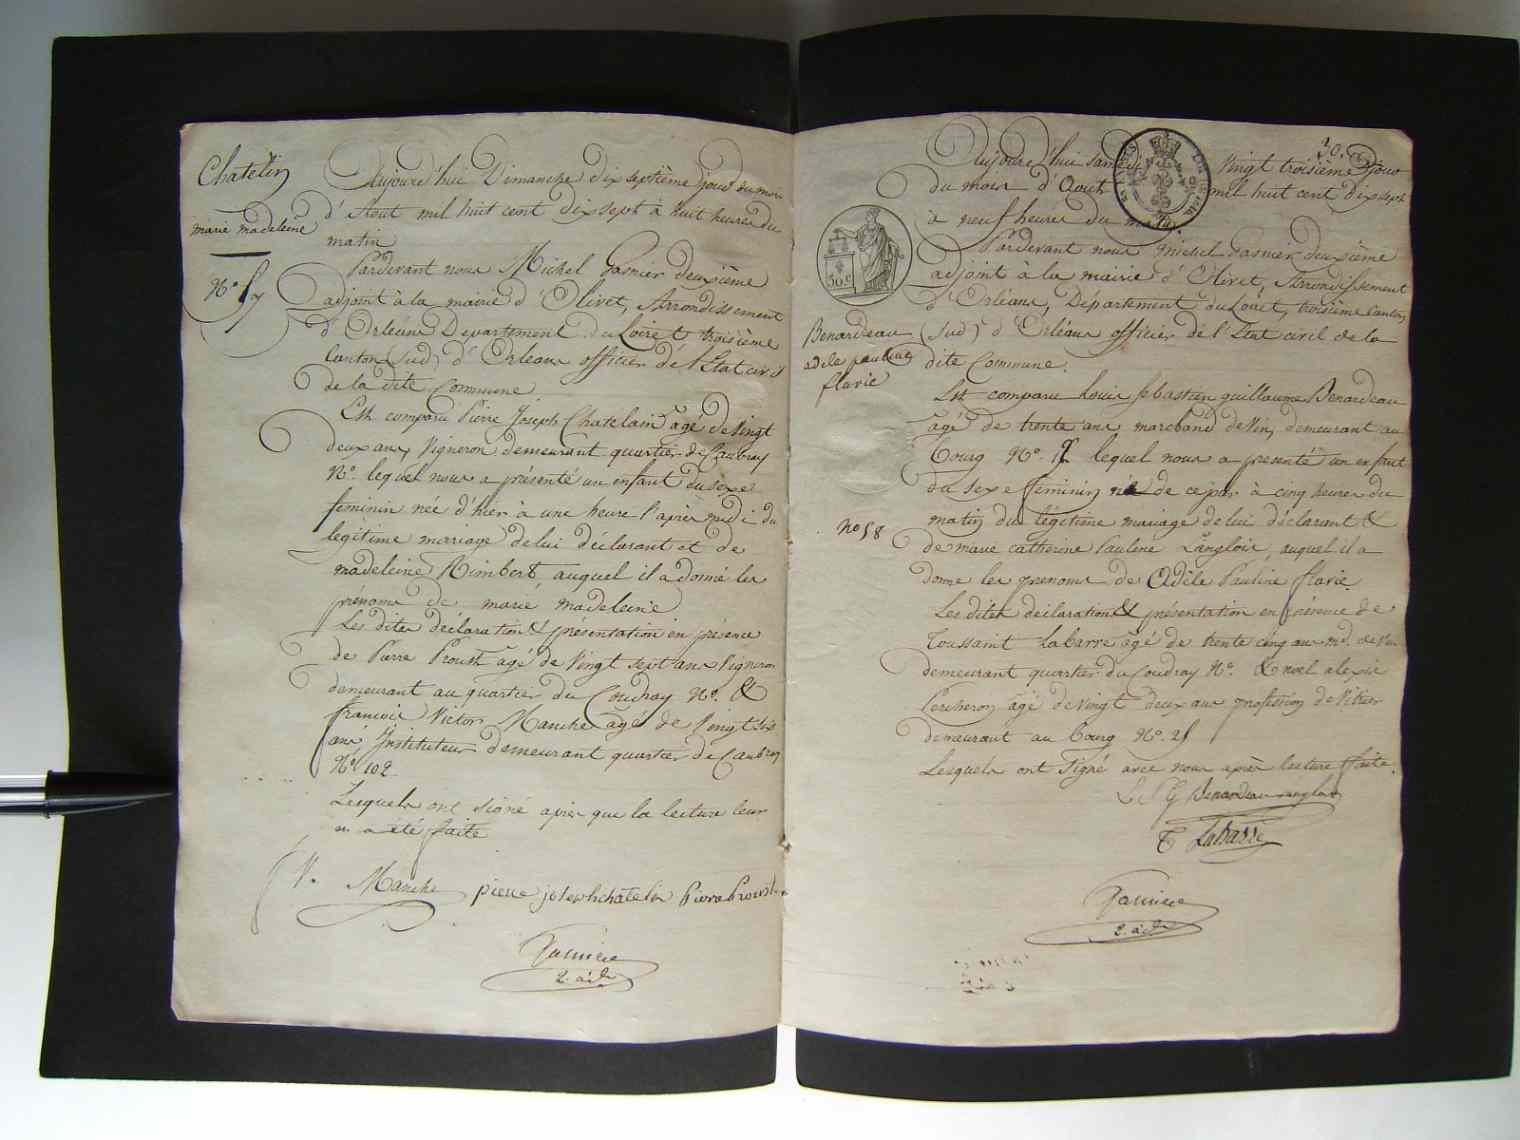 Chatelin
marie madeleine
N.º 57
Aujourd'hui Dimanche dix septième jour du mois
d'Aout mil huit cent Dix sept à huit heures du
matin
Pardevant nous Michel Gasnier deuxième
adjoint à la mairie d'Olivet, Arrondissement
d'Orléans Departement du Loiret troisième
Canton (Sud) d'Orléans officier de l'Etat civil
de la dite Commune
Est comparu Pierre Joseph Chatelain agé de Vingt
deux ans, Vigneron demeurant quartier de Caubray
N.º lequel nous a présenté un enfant du sexe
feminin née d'hier à une heure l'après midi du
legitime mariage de lui déclarant et de
madeleine Rimbert, auquel il a donné les
prenoms de marie madeleine
Les dites déclaration & présentation en présence
de Pierre Proust agé de Vingt sept ans Vigneron
demeurant au quartier du Coudray N.º &
francois Victor Manche agé de Vingt six
ans Instituteur demeurant quartier de Caubray
N.º 102
Lesquels ont signé après que la lecture leur
en a été faite
V. Manche pierre joseph chatelin Pierre Proust
Gasnier
2. adt
20.
Aujourd'hui samedi Vingt troisième jour
du mois d'Aout mil huit cent Dix sept
à neuf heures du matin.
Pardevant nous Michel Gasnier deuxième
adjoint à la mairie d'Olivet, Arrondissement
d'Orléans, Departement du Loiret, troisième Canton
(Sud) d'Orléans officier de l'Etat civil de la
dite Commune.
50 c
Benardeau
adele pauline
flavie
Est comparu Louis sebastien guillaume Benardeau
agé de trente ans marchand de Vin, demeurant au
bourg N.º lequel nous a presenté un enfant
du sexe feminin née de ce jour à cinq heures du
matin du légitime mariage de lui déclarant &
de marie catherine Pauline Langlois, auquel il a
donné les prenoms de Adèle Pauline flavie
no 58
Les dites déclaration & présentation en présence de
Toussaint Labarre agé de trente cinq ans md. de Vin
demeurant quartier du Coudray N.º & noel alexis
Percheron agé de vingt deux ans profession de Vitrier
demeurant au bourg N.º 25
Lesquels ont signé avec nous après lecture faite.
L S G Benardeau langlois
T Labarre
Gasnier
2. adt